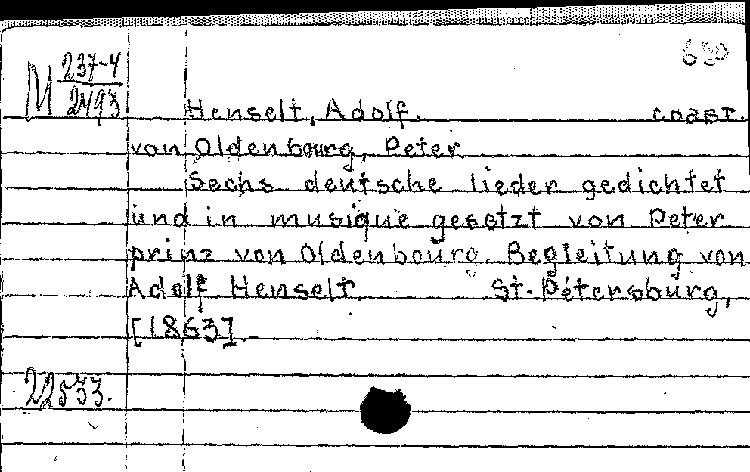 630
M 237-4
2493
Henselt, Adolf. coaвт.
von Oldenbourg, Peter
Sechs deutsche lieder gedichtet
und in musique gesetzt von Peter
prinz von Oldenbourg. Begleitung von
Adolf Henselt. St.-Pétersburg,
[1863].
22533.